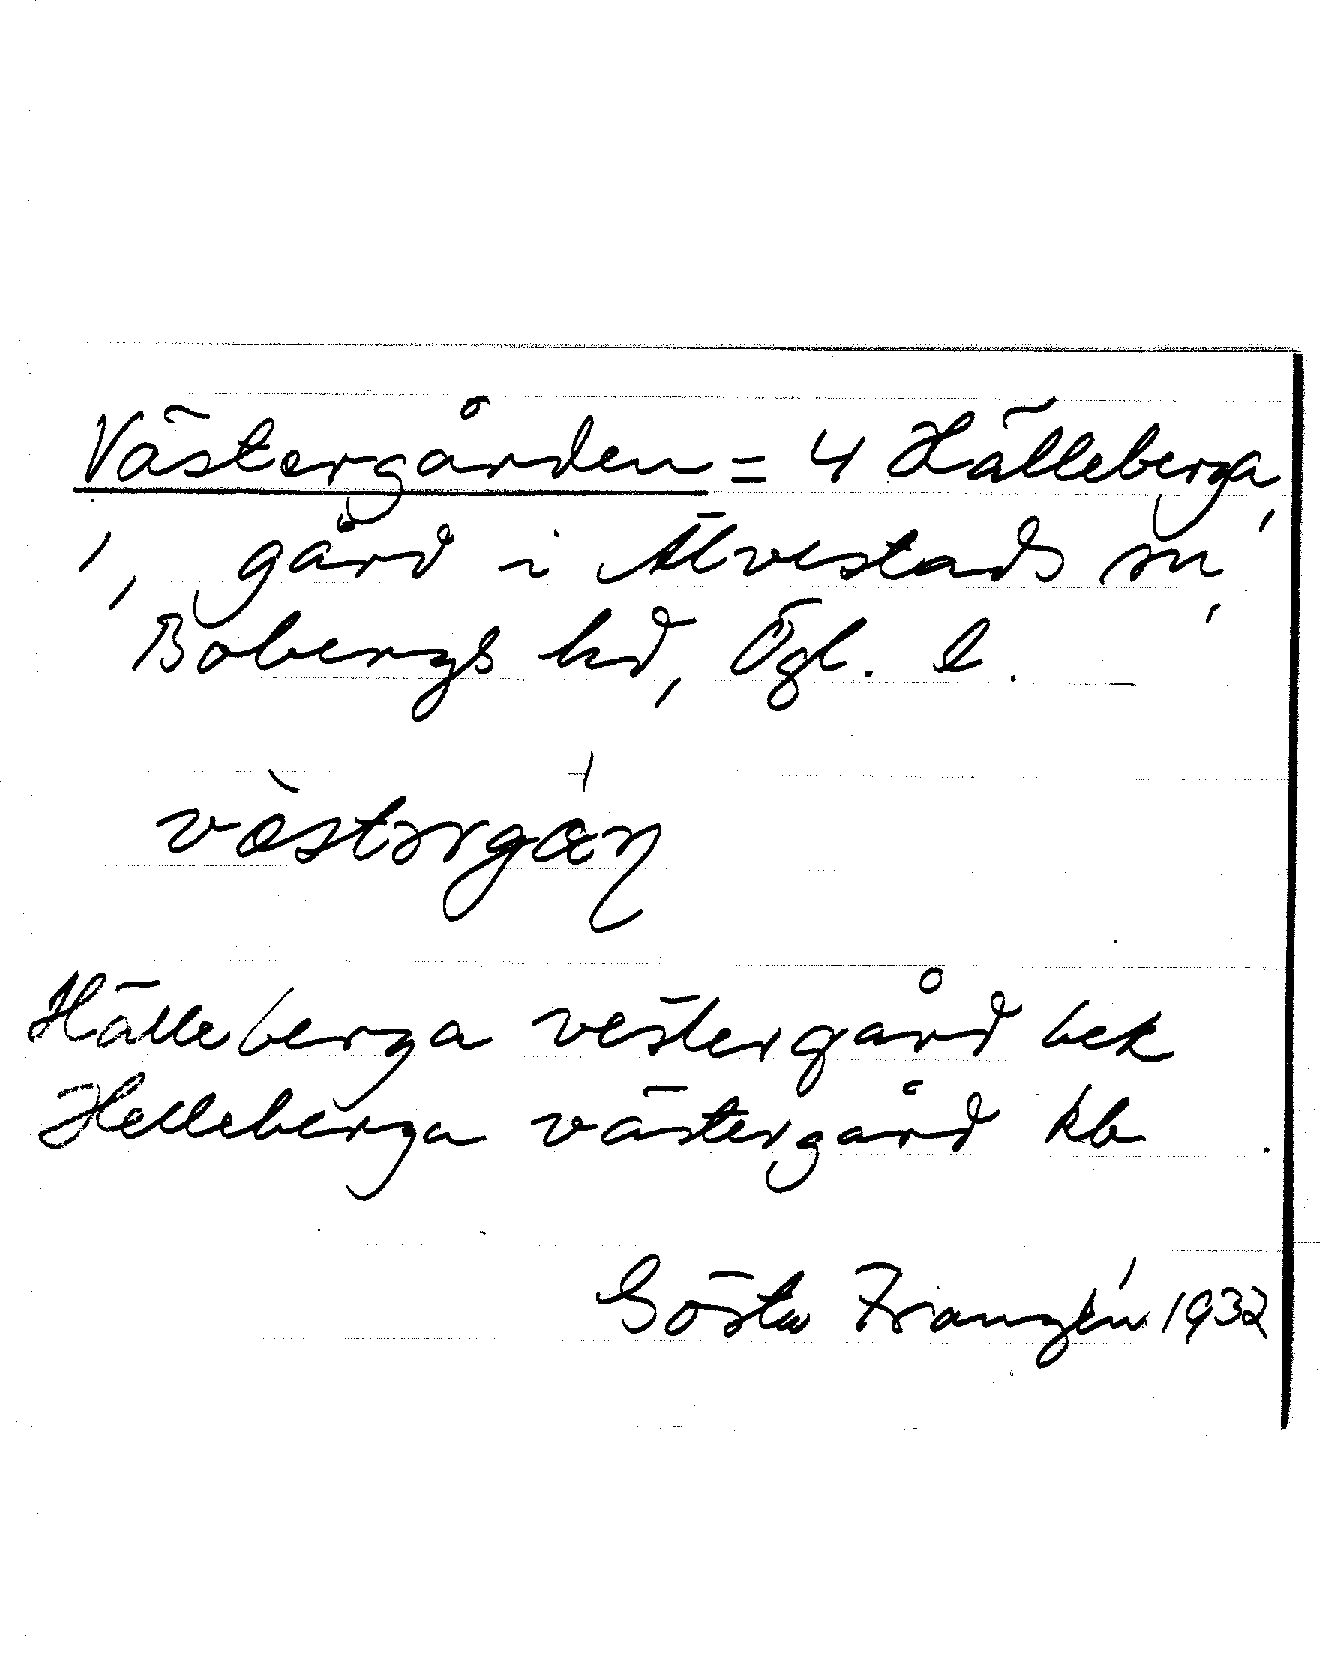 Västergården = 4 Hälleberga,
1, gård i Älvestads sn,
Bobergs hd, Ögl. l.
Hälleberga vestergård bek
Helleberga västergård kb
Gösta Franzén 1932